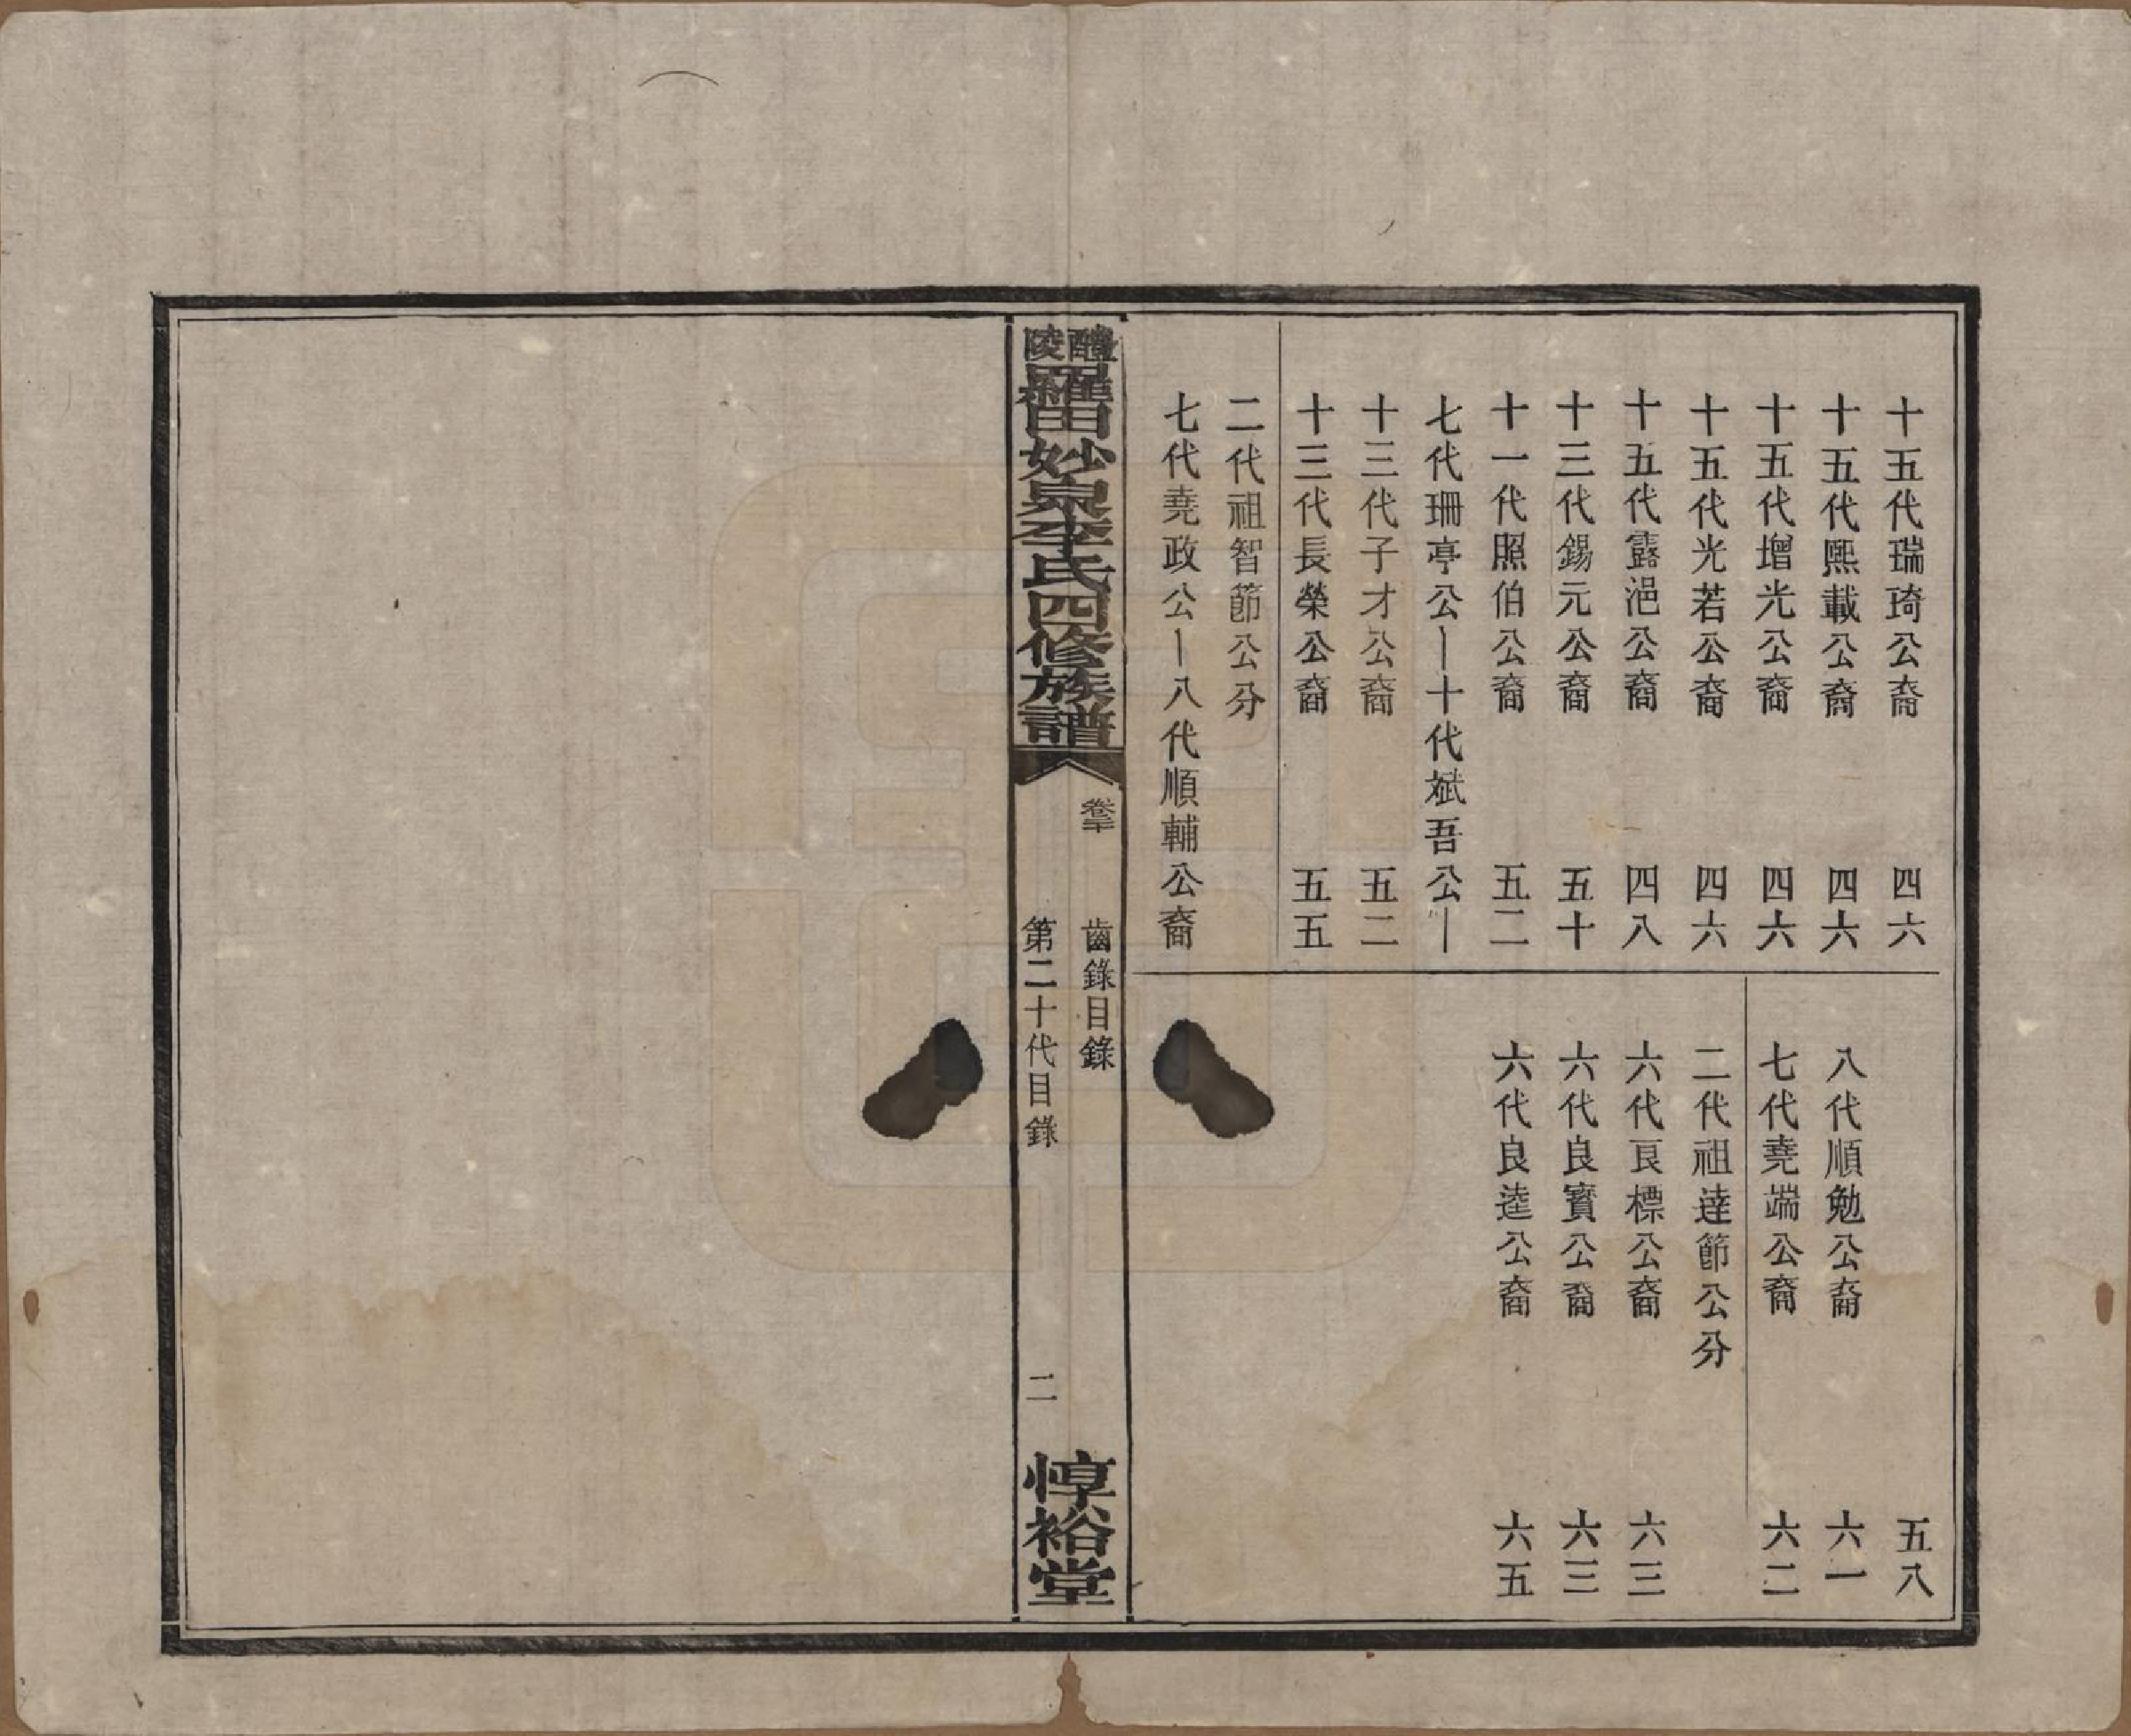 十五代瑞琦公裔 四六
十五代熙載公裔 四六
十五代增光公裔 四六
十五代光若公裔 四六
十五代露浥公裔 四八
十三代錫元公裔 五十
十一代照伯公裔 五二
七代珊亭公—十代斌吾公—
十三代子才公裔 五二
十三代長榮公裔 五五
二代祖智節公分
七代堯政公—八代順輔公裔
五八
八代順勉公裔 六一
七代堯端公裔 六二
二代祖達節公分
六代良標公裔 六三
六代良寳公裔 六三
六代良逵公裔 六五
醴陵羅田妙泉李氏四修族譜
卷三 齒錄目錄
第二十代目錄 二
惇裕堂